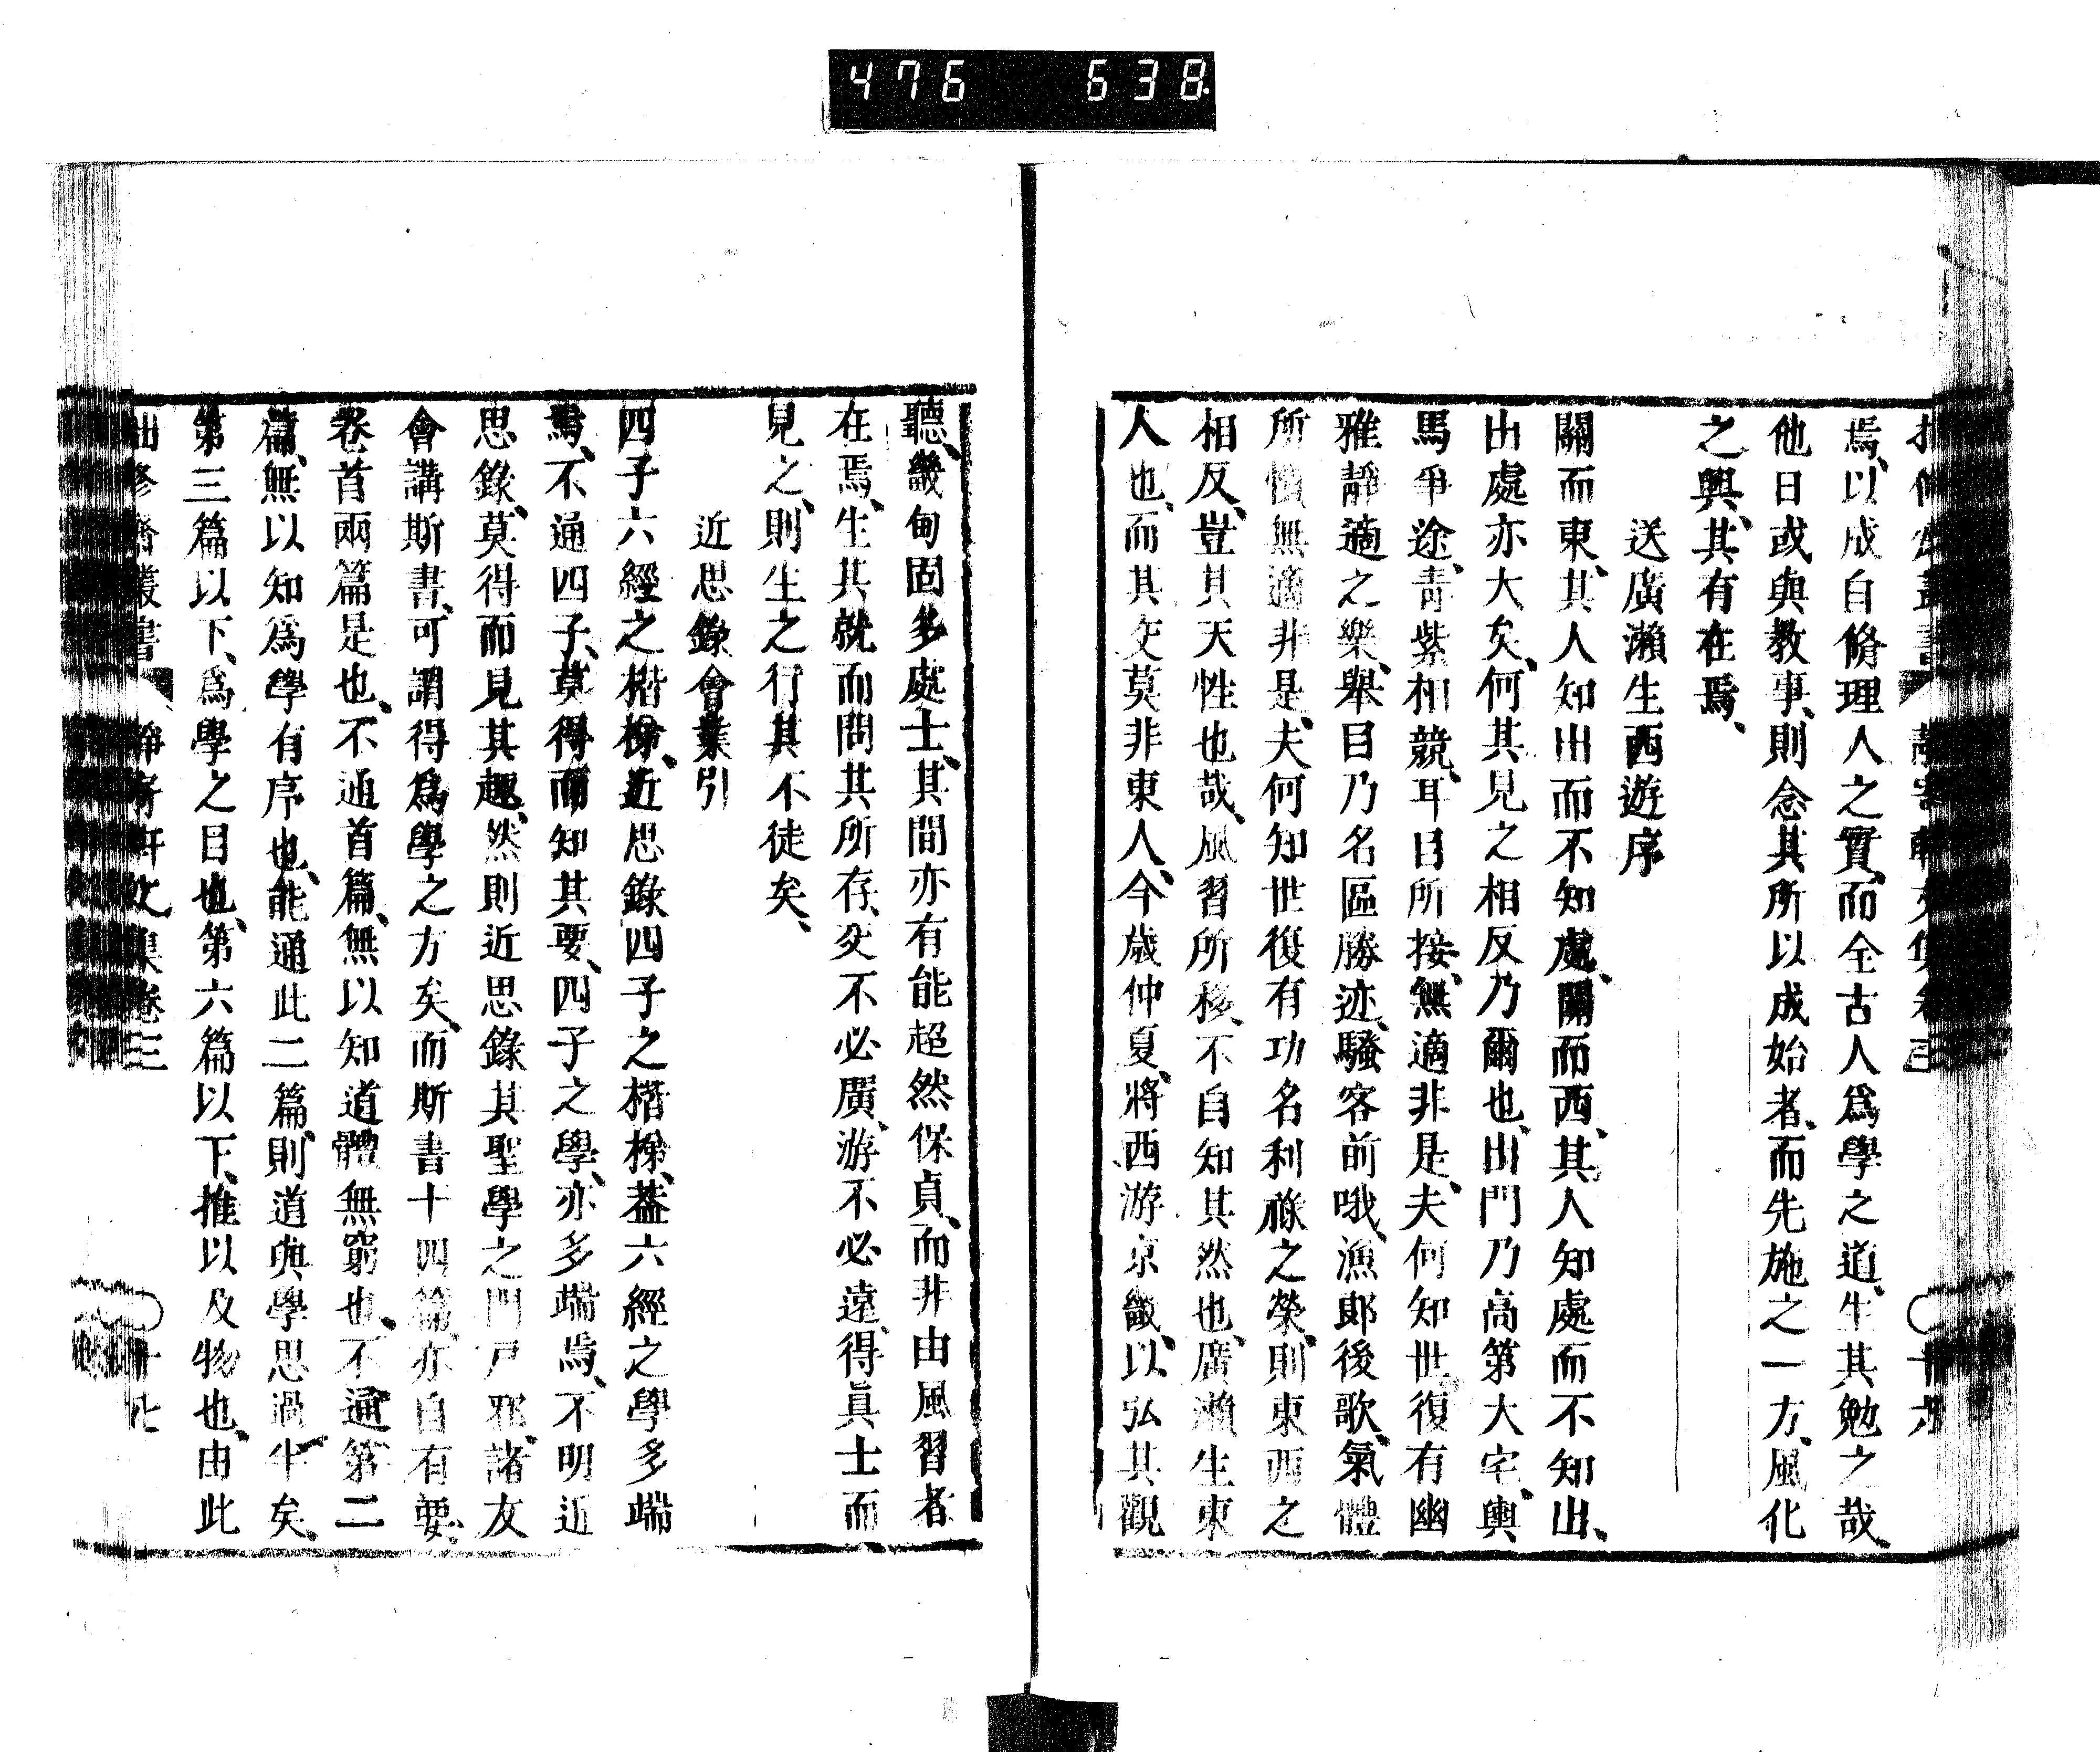 476 638
焉、以成自脩理人之實、而全古人爲學之道、生其勉之哉、
他日或與教事、則念其所以成始者、而先施之一方、風化
之興、其有在焉、
送廣瀨生西遊序
關而東、其人知出而不知處、關而西、其人知處而不知出、
出處亦大矣、何其見之相反乃爾也、出門乃高第大宅、輿
馬爭途、靑紫相競、耳目所接、無適非是、夫何知世復有幽
雅靜適之樂、舉目乃名區勝迹、騷客前哦、漁郞後歌、氣體
所慣無適非是、夫何知世復有功名利祿之榮、則東西之
相反、豈其天性也哉、風習所移、不自知其然也、廣瀨生東
人也、而其交莫非東人、今歲仲夏、將西游京畿、以弘其觀
聽、畿甸固多處士、其間亦有能超然保貞、而非由風習者
在焉、生其就而問其所存、交不必廣、游不必遠、得眞士而
見之、則生之行其不徒矣、
近思錄會業引
四子六經之楷梯、近思錄四子之楷梯、蓋六經之學多端
焉、不通四子、莫得而知其要、四子之學、亦多端焉、不明近
思錄、莫得而見其趣、然則近思錄其聖學之門戶邪、諸友
會講斯書、可謂得爲學之方矣、而斯書十四篇、亦自有要、
卷首兩篇是也、不通首篇、無以知道體無窮也、不通第二
篇、無以知爲學有序也、能通此二篇、則道與學思過半矣、
第三篇以下、爲學之目也、第六篇以下、推以及物也、由此
修齋叢書 靜寄軒文集卷三 十七